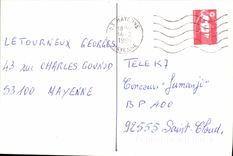 53 MAYENNE
MAYENNE
LETOURNEUX GEORGES
43 rue CHARLES GOUNOD
53100 MAYENNE
TELE K7
Concours "Jumanji"
BP 400
92555 Saint-Cloud